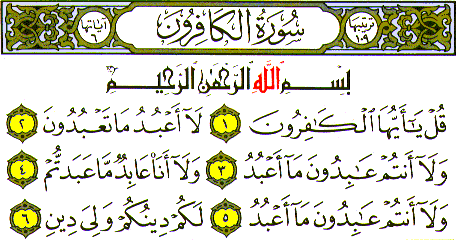 ترتيبها ١٠٩ سُورَةُ الكَافِرُون آياتها ٦
بِسْمِ اللَّهِ الرَّحْمَنِ الرَّحِيمِ
قُلْ يَٰٓأَيُّهَا ٱلْكَٰفِرُونَ ١ لَآ أَعْبُدُ مَا تَعْبُدُونَ ٢
وَلَآ أَنتُمْ عَٰبِدُونَ مَآ أَعْبُدُ ٣ وَلَآ أَنَا۠ عَابِدٌ مَّا عَبَدتُّمْ ٤
وَلَآ أَنتُمْ عَٰبِدُونَ مَآ أَعْبُدُ ٥ لَكُمْ دِينُكُمْ وَلِىَ دِينِ ٦